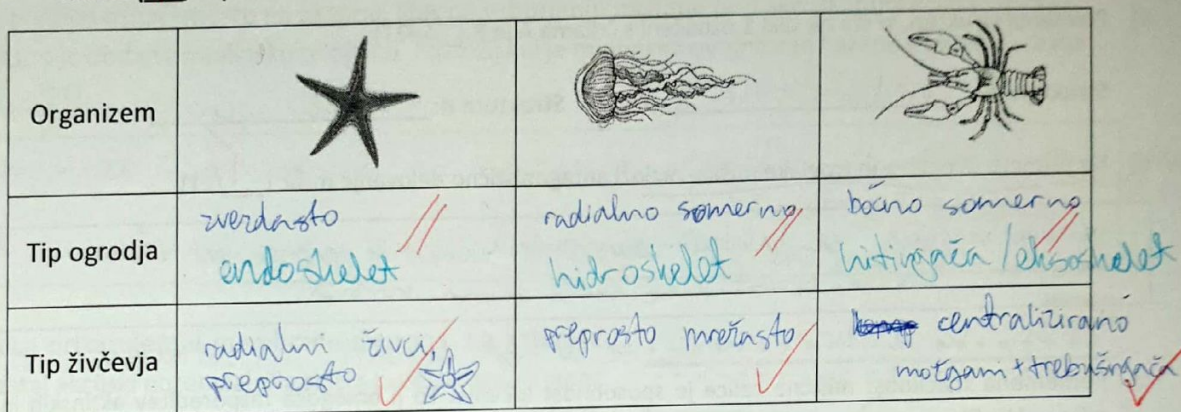 Organizem
Tip ogrodja
zvezdasto
endoskelet
radialno somerno
hidroskelet
bočno somerno
hitinjača / eksoskelet
Tip živčevja
radialni živci,
preprosto
preprosto mrežasto
centralizirano
možgani + trebušnjača